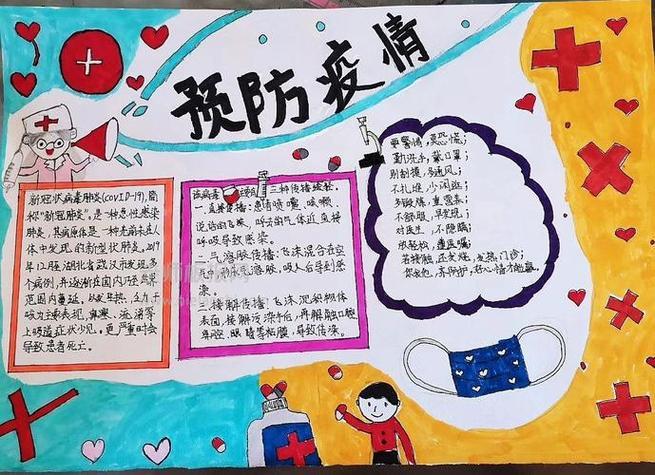 预防疫情
新冠状病毒肺炎(COVID-19),简
称"新冠肺炎",是一种急性感染
肺炎,其病原体是一种先前未在人
体中发现的新型状肺炎。2019
年12月湖北省武汉市发现多
个病例,并逐渐在国内乃至世界
范围内蔓延。以发热、乏力、干
咳为主要表现,鼻塞、流涕等
上呼道症状少见。更严重时会
导致患者死亡。
该病毒 三种传播途径:
一.直接传播:患者喷嚏、咳嗽、
说话的飞沫,呼出的气体近直接
呼吸导致感染。
二.气溶胶传播:飞沫混合在空
气,形成气溶胶,吸入后导到感
染。
三.接触传播:飞沫沉积物体
表面,接触污染手后,再接触口腔
鼻腔、眼睛等粘膜,导致传染。
要警惕,莫恐慌;
勤洗手,戴口罩;
别封窗,多通风;
不扎堆,少闲逛;
不舒服,早发现;
对医生,不隐瞒;
放轻松,遵医嘱;
若接触,还发烧,发热门诊;
你我他,齐防护,